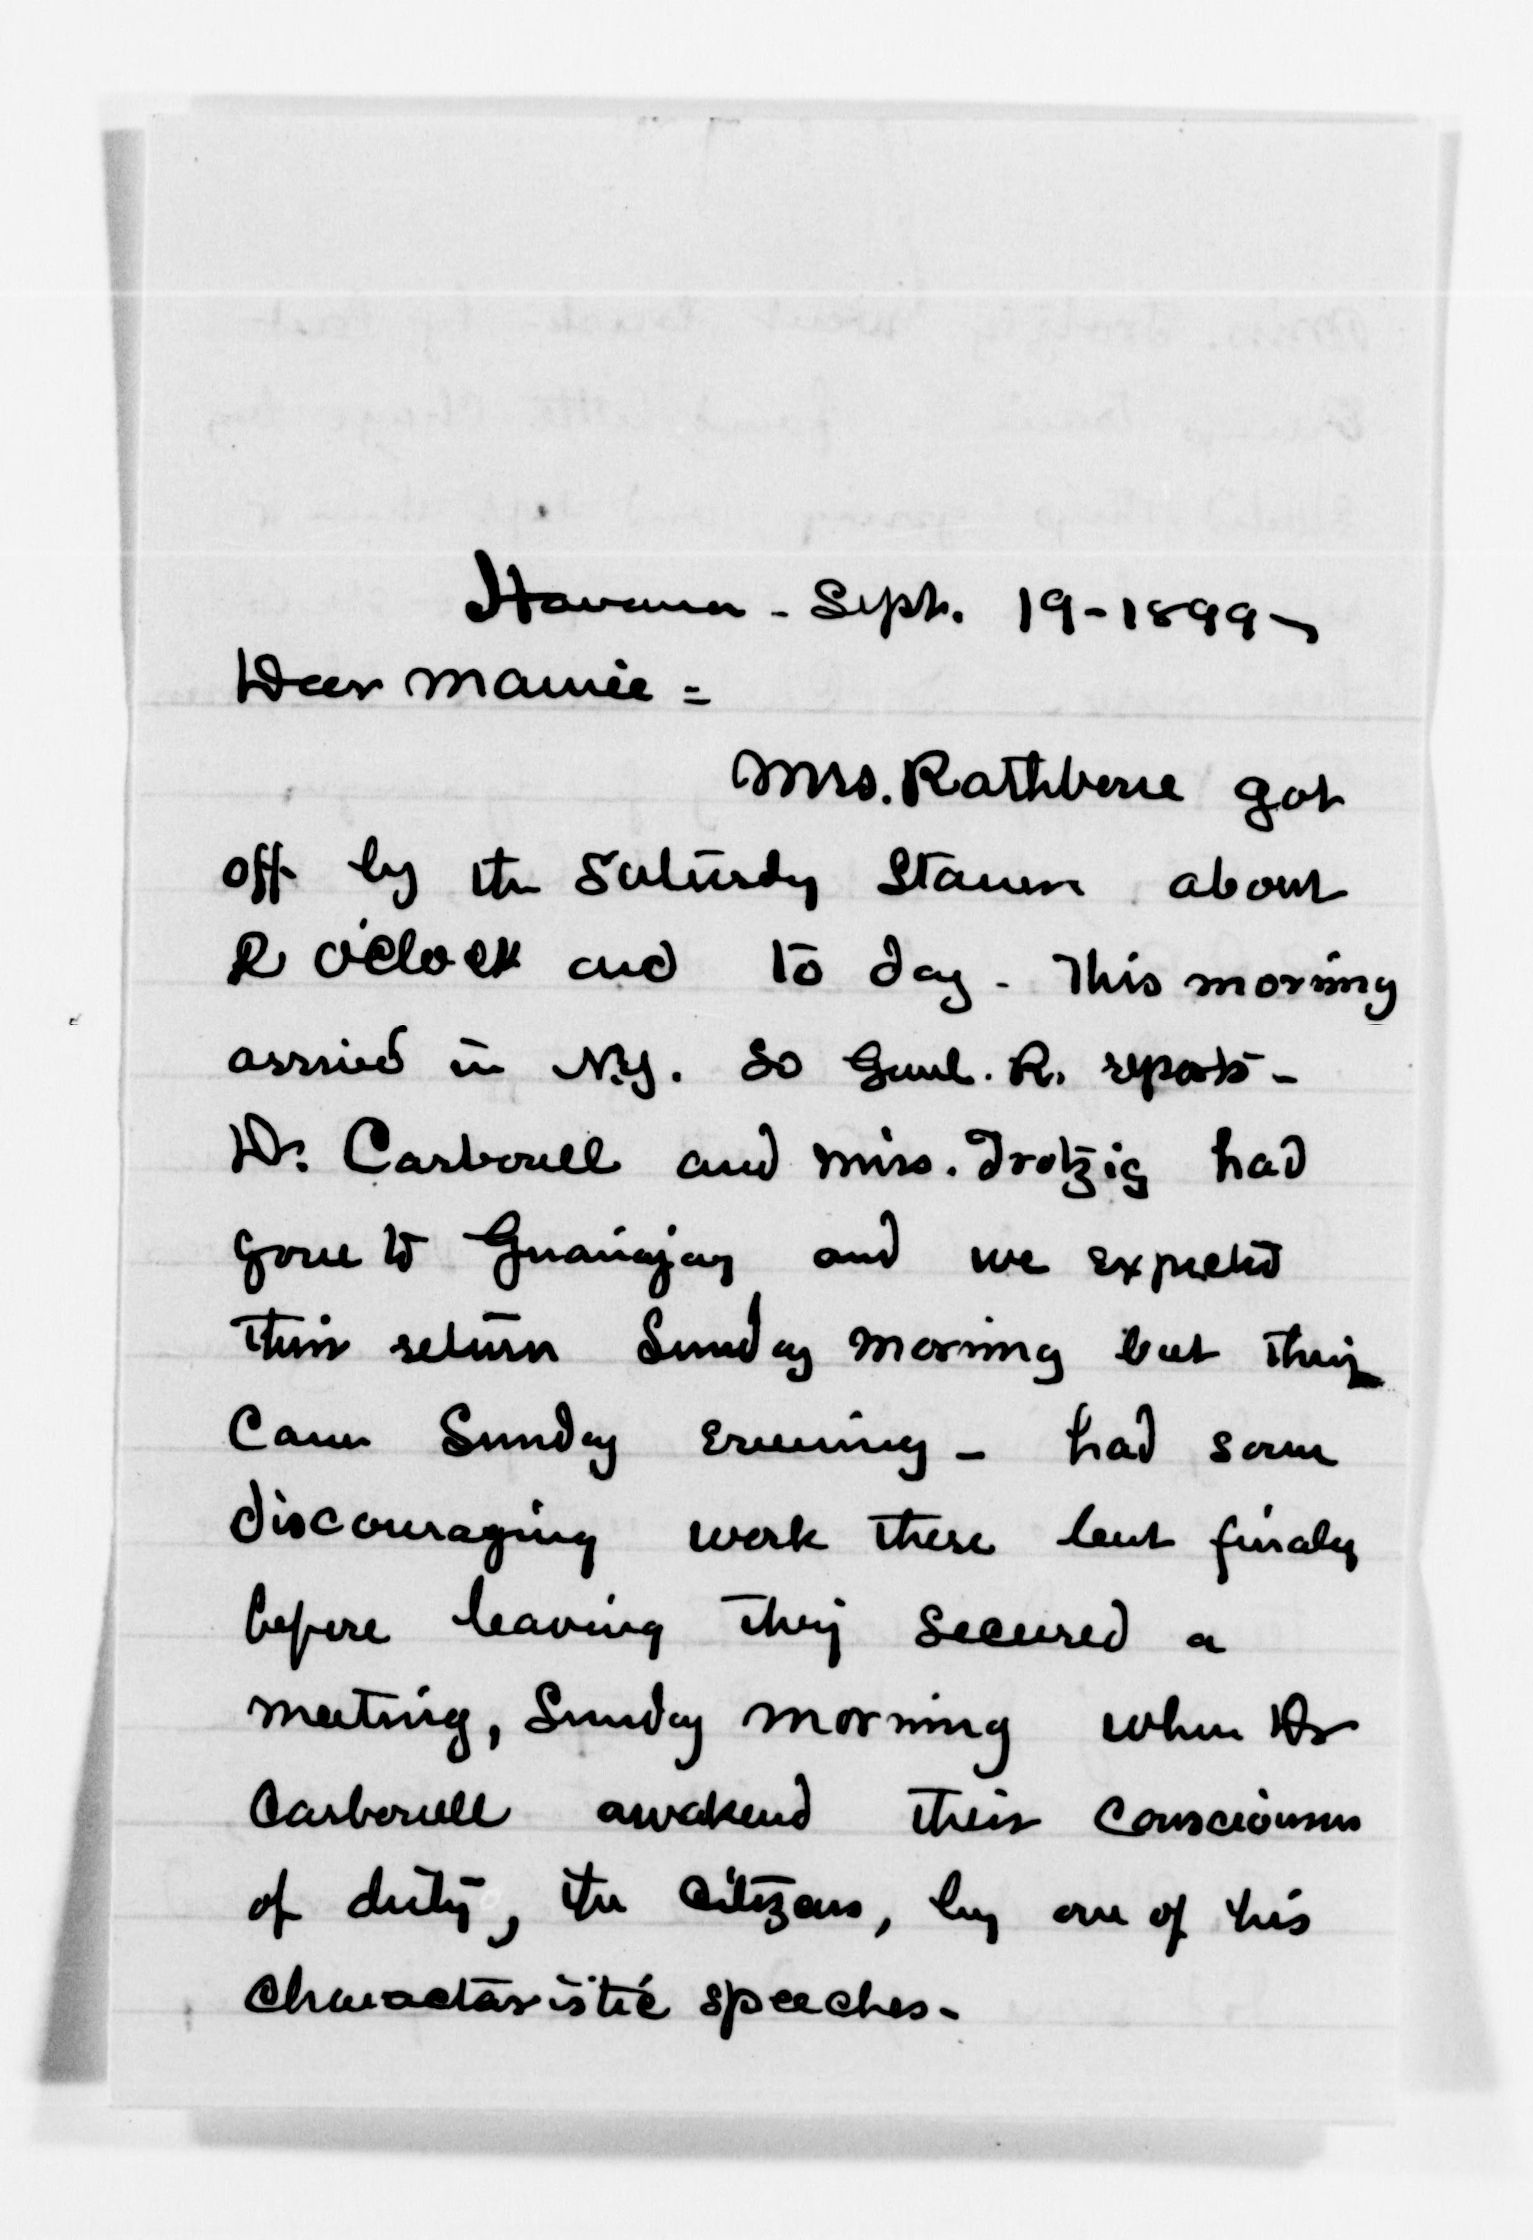 Havana - Sept. 19-1899 -
Dear Mamie =
Mrs. Rathbone got
off by the Saturdy Steamer about
2 O'Clock and to day - This morning
arrived in N.Y. So Genl. R. reports -
Dr. Carbonell and Miss. Trotzig had
gone to Guanajay and we expected
their return Sunday morning but they
Came Sunday evening - had some
discouraging work there but finaly
before leaving they secured a
meeting, Sunday morning when Dr
Carbonell awakend their Consciousness
of duty, the Citizens, by one of his
Charactaristic speeches -